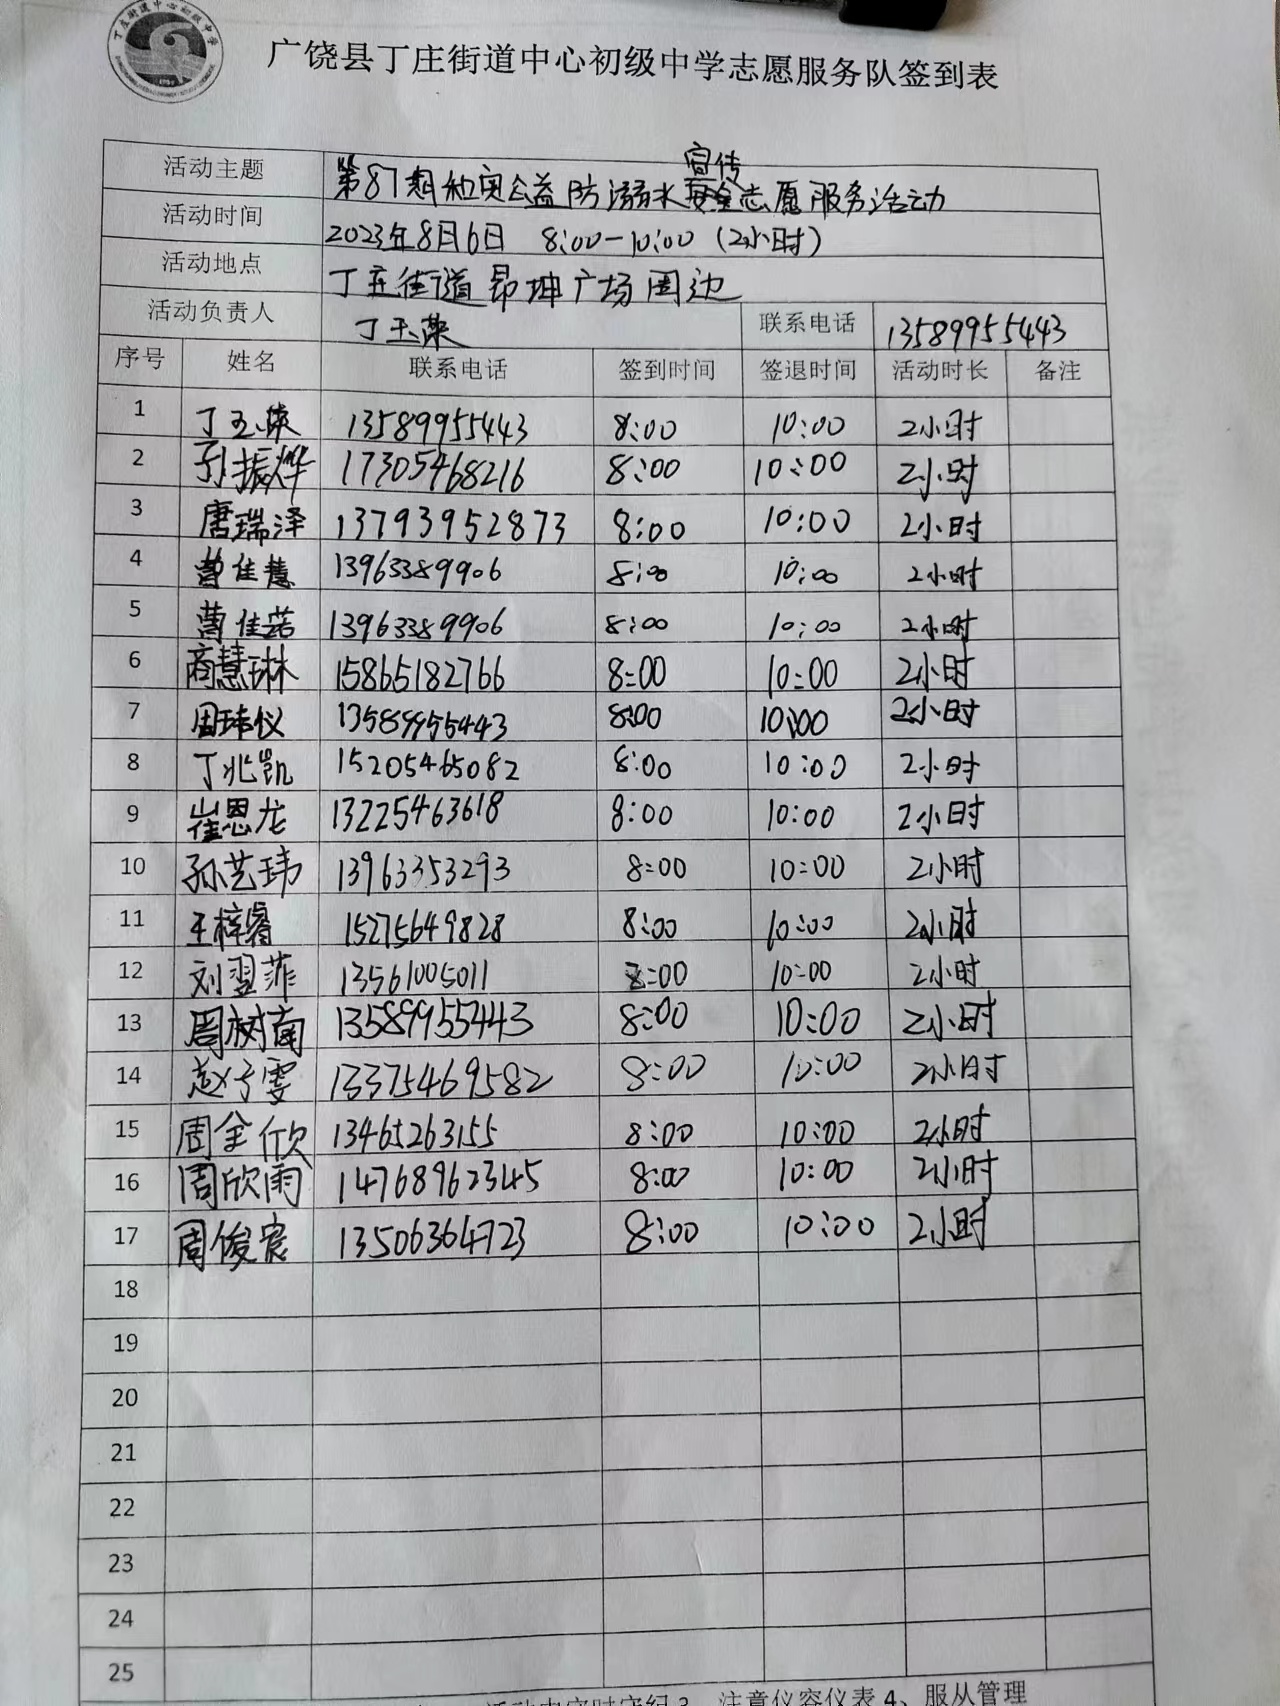 丁庄街道中心初级中学
广饶县丁庄街道中心初级中学志愿服务队签到表
活动主题 第87期和奥公益防溺水安全宣传志愿服务活动
活动时间 2023年8月6日 8:00-10:00（2小时）
活动地点 丁庄街道昂坤广场周边
活动负责人 丁玉荣 联系电话 13589955443
序号 姓名 联系电话 签到时间 签退时间 活动时长 备注
1 丁玉荣 13589955443 8:00 10:00 2小时
2 孙振烨 17305468216 8:00 10:00 2小时
3 唐瑞泽 13793952873 8:00 10:00 2小时
4 曹佳慧 13963389906 8:00 10:00 2小时
5 曹佳诺 13963389906 8:00 10:00 2小时
6 商慧琳 15865182766 8:00 10:00 2小时
7 周玮仪 13589955443 8:00 10:00 2小时
8 丁兆凯 15205465082 8:00 10:00 2小时
9 崔恩龙 13225463618 8:00 10:00 2小时
10 孙艺玮 13963353293 8:00 10:00 2小时
11 王梓睿 15275649828 8:00 10:00 2小时
12 刘翌菲 13561005011 8:00 10:00 2小时
13 周树南 13589955443 8:00 10:00 2小时
14 赵予雯 13375469582 8:00 10:00 2小时
15 周金欣 13465263155 8:00 10:00 2小时
16 周欣雨 14768962345 8:00 10:00 2小时
17 周俊宸 13506364723 8:00 10:00 2小时
18
19
20
21
22
23
24
25
注意仪容仪表 4、服从管理